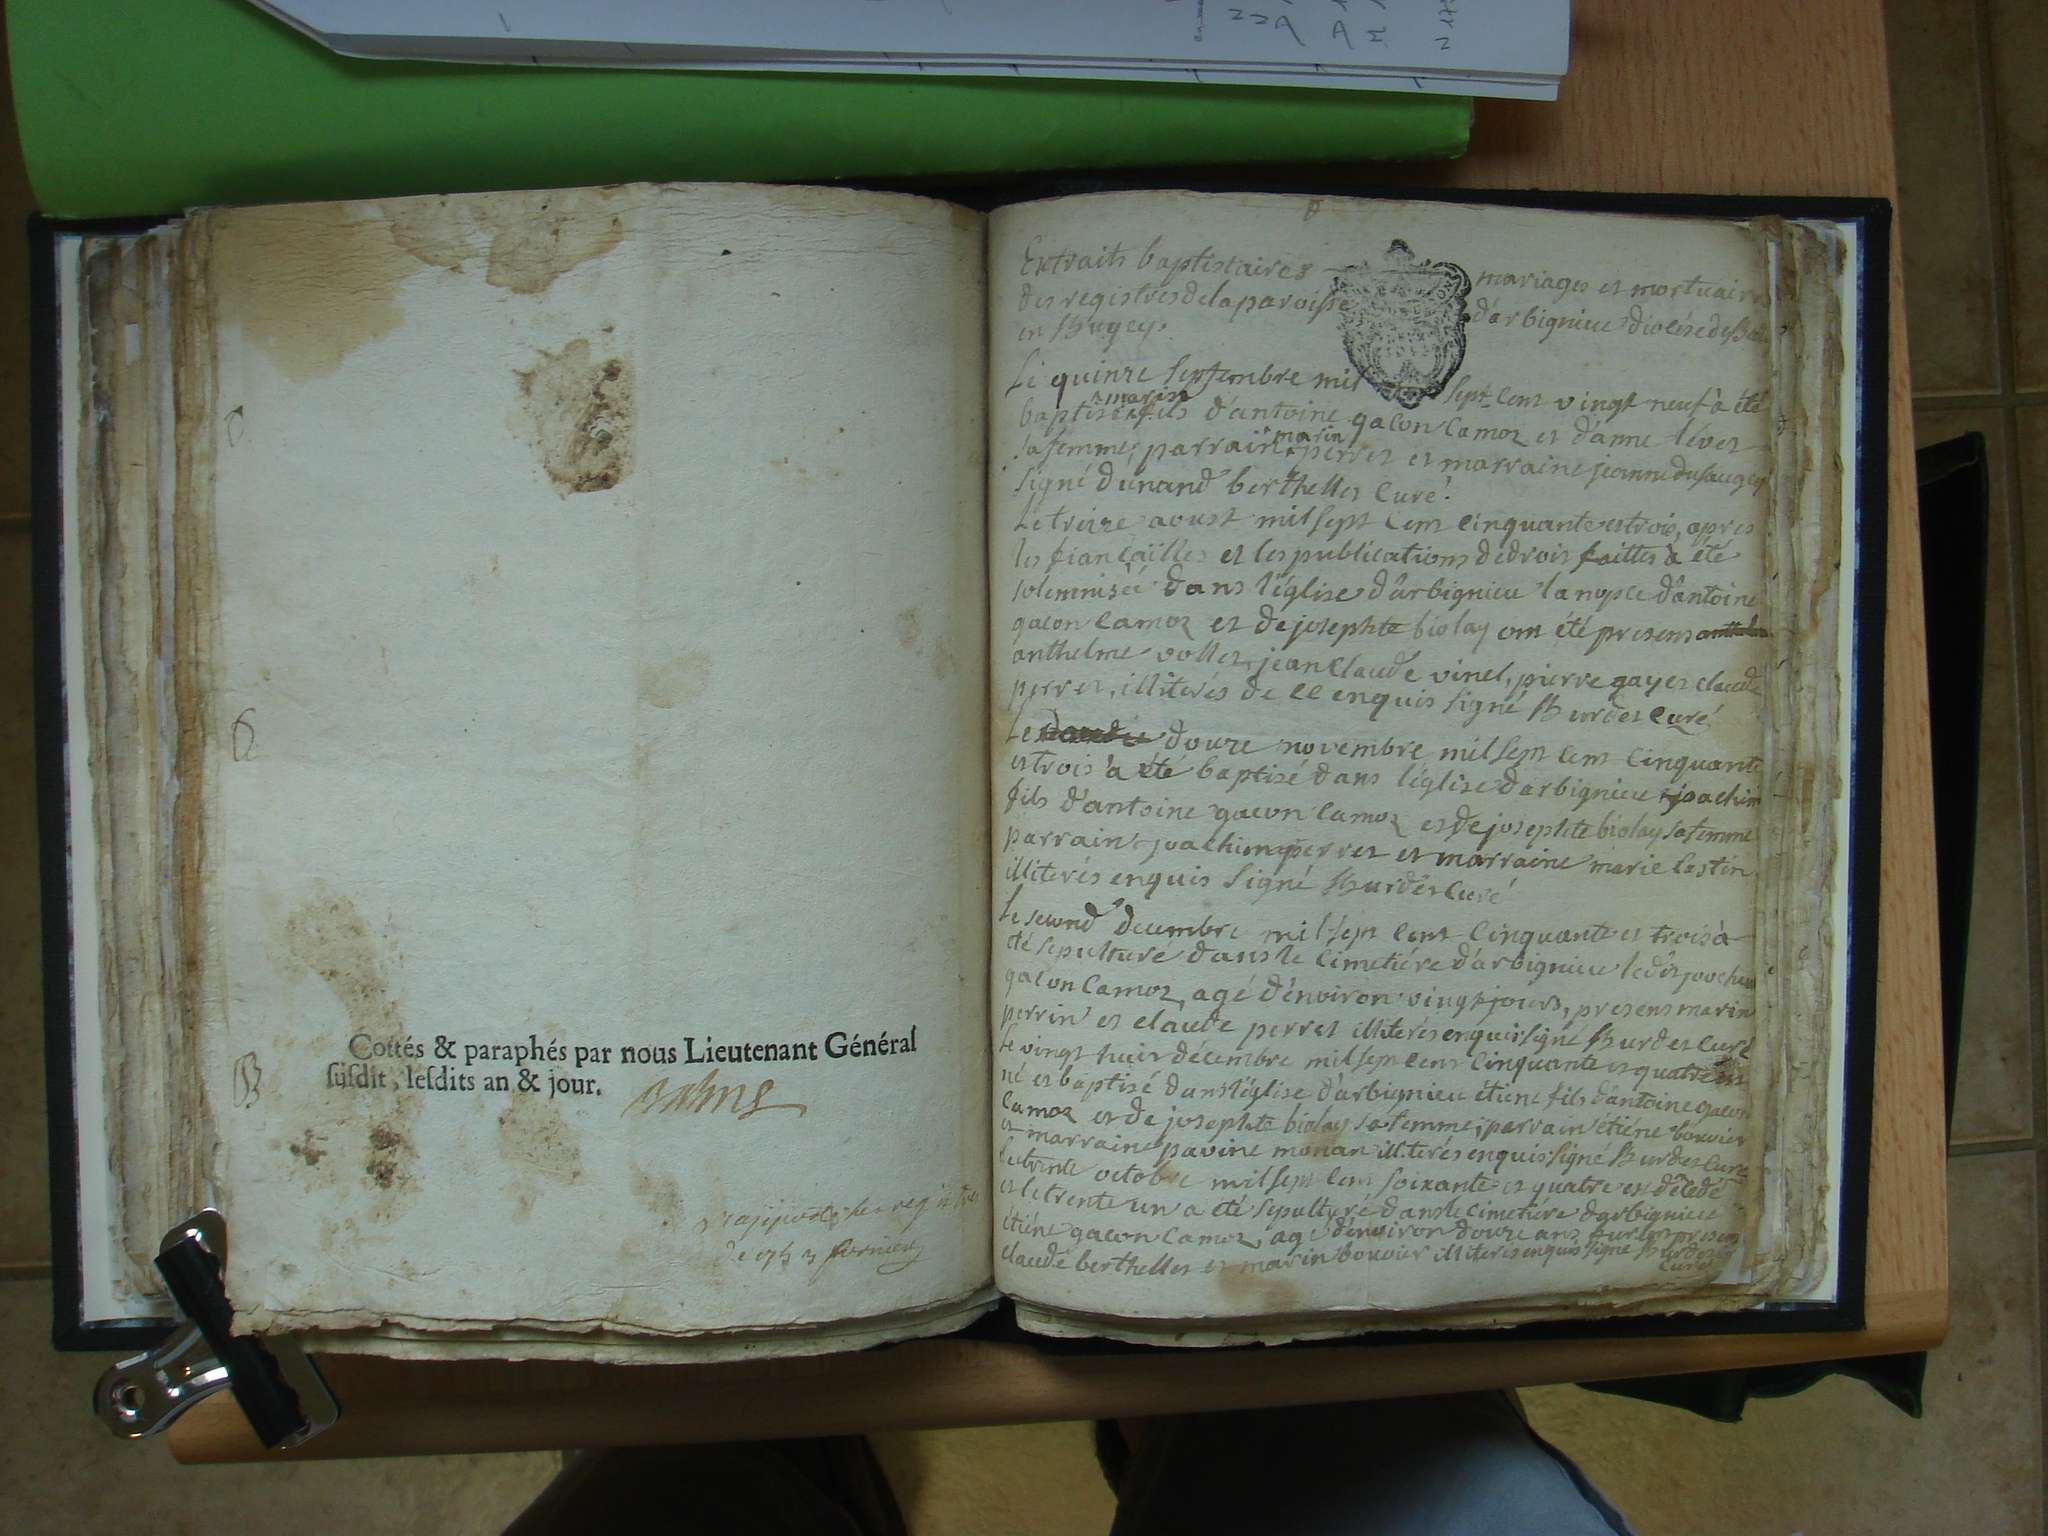 Cottés & paraphés par nous Lieutenant Général
susdit, lesdits an & jour.
Extraits baptistaires mariages et mortuaires
des registres de la paroisse d'arbignieu diocése de
en Bugey.
Le quinze septembre mil sept cent vingt neuf à été
baptisé marin fils d'antoine gacon camoz et d'anne
sa femme, parrain marin perret et marraine jeanne dusaugey
signé dunand berthellet curé.
Le treize aoust mil sept cent cinquante et trois, apres
les fiançailles et les publications de droit faittes à été
solemnisée dans l'église d'arbignieu la nopce d'antoine
gacon camoz et de josephte biolay ont été presens
anthelme vollet, jean claude vinel, pierre gay et claude
perret, illiterés de ce enquis signé Burdet curé
Le douze novembre mil sept cent cinquante
et trois à été baptisé dans l'église d'arbignieu joachim
fils d'antoine gacon camoz et de josephte biolay sa femme
parrain joachim perret et marraine marie castin
illiterés enquis signé Burdet curé
Le second decembre mil sept cent cinquante et trois à
été sepulturé dans le cimetiére d'arbignieu ledit joachim
gacon camoz, agé d'environ vingt jours, presens marin
perrin et claude perret illiterés enquis signé Burdet curé
Le vingt huit décembre mil sept cent cinquante et quatre est
né et baptisé dans l'église d'arbignieu étiene fils d'antoine gacon
camoz et de josephte biolay sa femme, parrain étiene bouvier
et marraine pavine monan illiterés enquis signé Burdet curé
Le trente octobre mil sept cent soixante et quatre est décédé
et le trente un a été sepulturé dans le cimetiére d'arbignieu
étiéne gacon camoz, agé d'environ douze ans presens
claude berthellet et marin bouvier illiterés enquis signé Burdet
curé